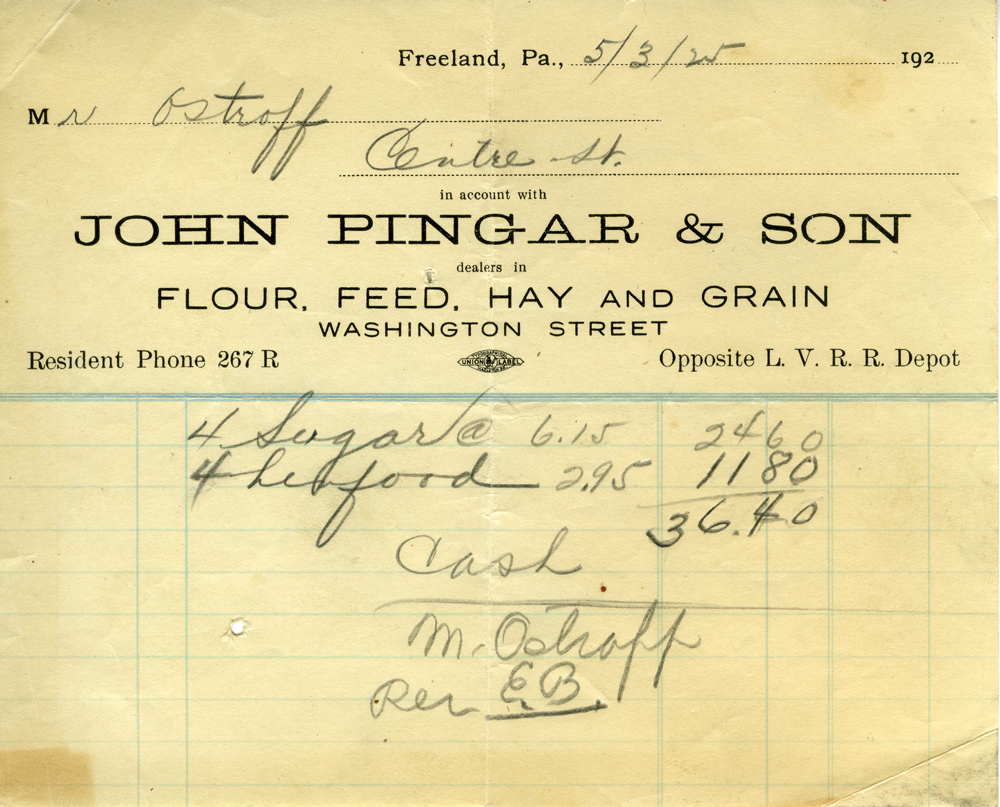 Freeland, Pa., 5/3/25 192
Mr Ostroff
Centre St.
in account with
JOHN PINGAR & SON
dealers in
FLOUR, FEED, HAY AND GRAIN
WASHINGTON STREET
Resident Phone 267 R UNION LABEL Opposite L. V. R. R. Depot
4 Sugar @ 6.15 24 60
4 henfood 2.95 11 80
36.40
Cash
M. Ostroff
Per E.B.